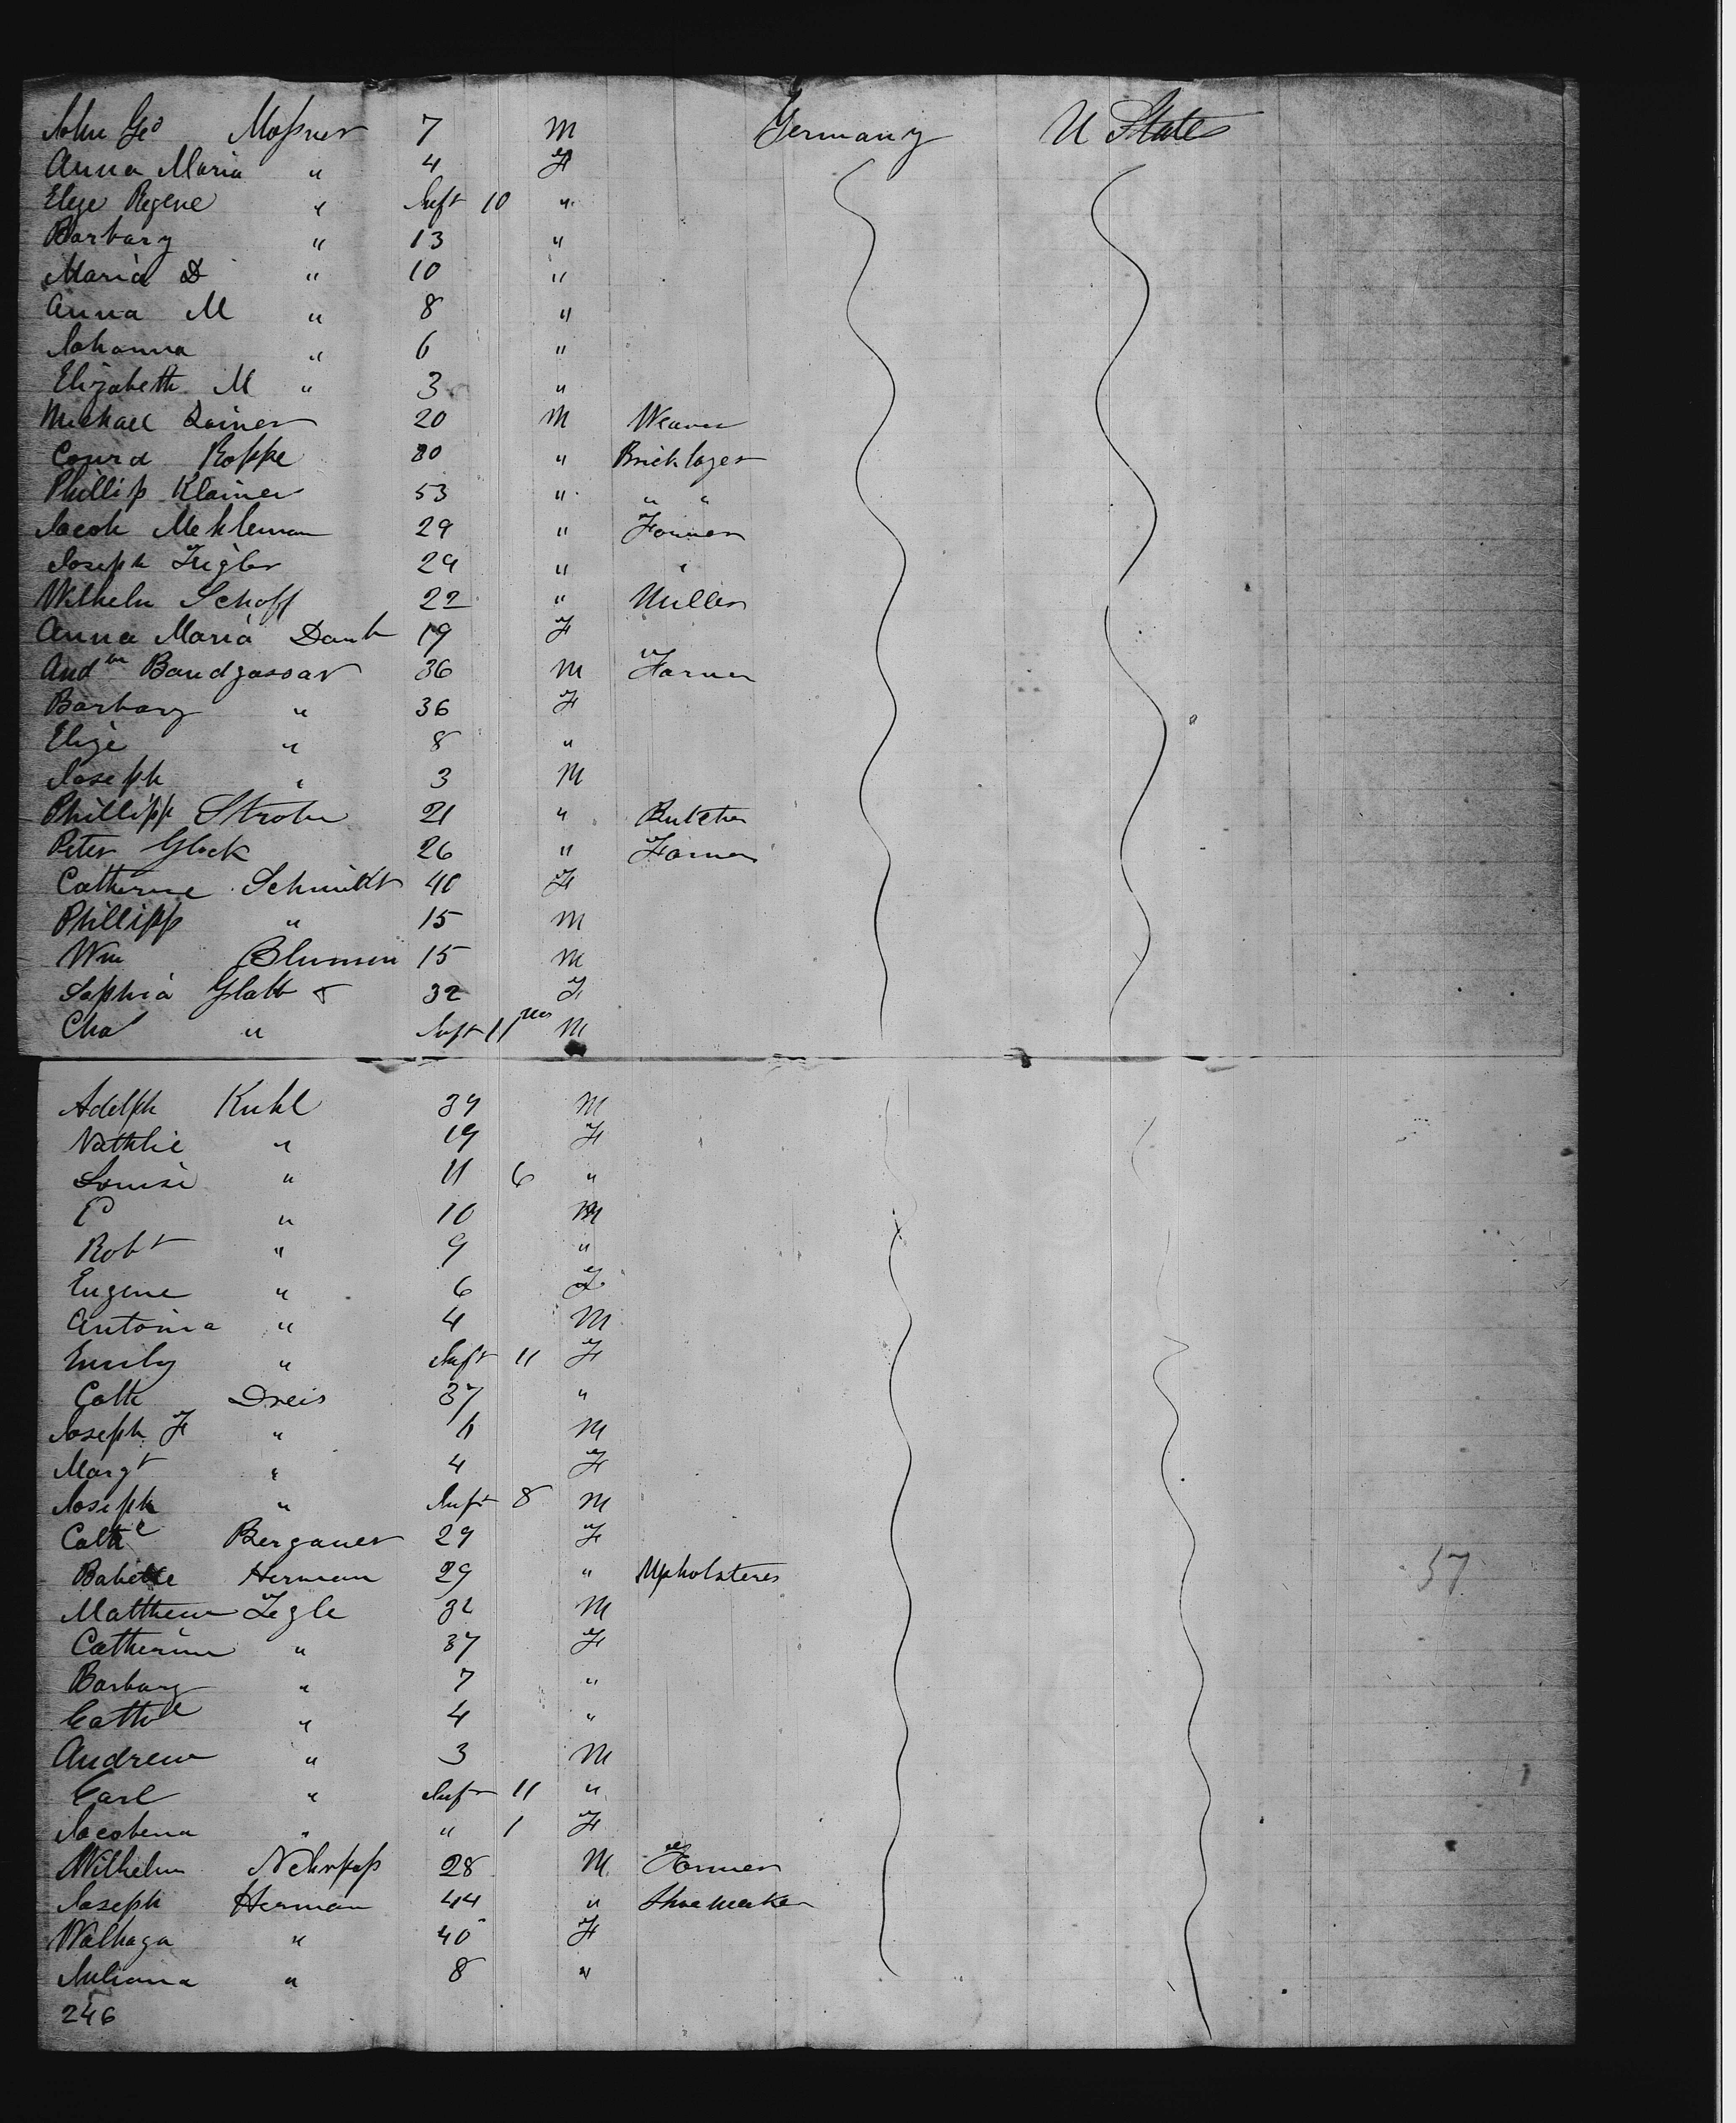 John Geo Moßner 7 M Germany U States
Anna Maria " 4 F
Elize Regene " Inft 10 "
Barbary " 13 "
Maria D " 10 "
Anna M " 8 "
Johanna " 6 "
Elizabeth M " 3 "
Michael 20 M Weaver
Conrd Koppe 30 " Bricklayer
Phillip Klainer 53 " " "
Jacob Mehleman 29 " Farmer
Joseph 29 " "
Wilhelm Schoff 22 " Miller
Anna Maria Daub 19 F
Andw Bandgassar 36 M Farmer
Barbary " 36 F
Elize " 8 "
Joseph " 3 M
Phillipp Strohn 21 " Butcher
Peter Glock 26 " Farmer
Catherine Schmidt 40 F
Phillipp " 15 M
Wm Blumen 15 M
Sophia Glatt 32 F
Cha " Inft 11 mos M
Adolph Kuhl 39 M
Nathlie " 19 F
Louise " 11 6 "
P " 10 M
Robt " 9 "
Eugene " 6 F
Antonia " 4 M
Emily " Inft 11 F
Cath Dreis 37 "
Joseph F " 6 M
Margt " 4 F
Joseph " Inft 8 M
Cathe Berganer 29 F
Babette Herman 29 " Upholsteres
Matthew Zegle 32 M
Catherine " 37 F
Barbary " 7 "
Cathe " 4 "
Andrew " 3 M
Carl " Inft 11 "
Jacobena " " 1 F
Wilhelm 28 M Farmer
Joseph Herman 44 " Shoemaker
Walbaga " 40 F
Juliana " 8 "
246
57